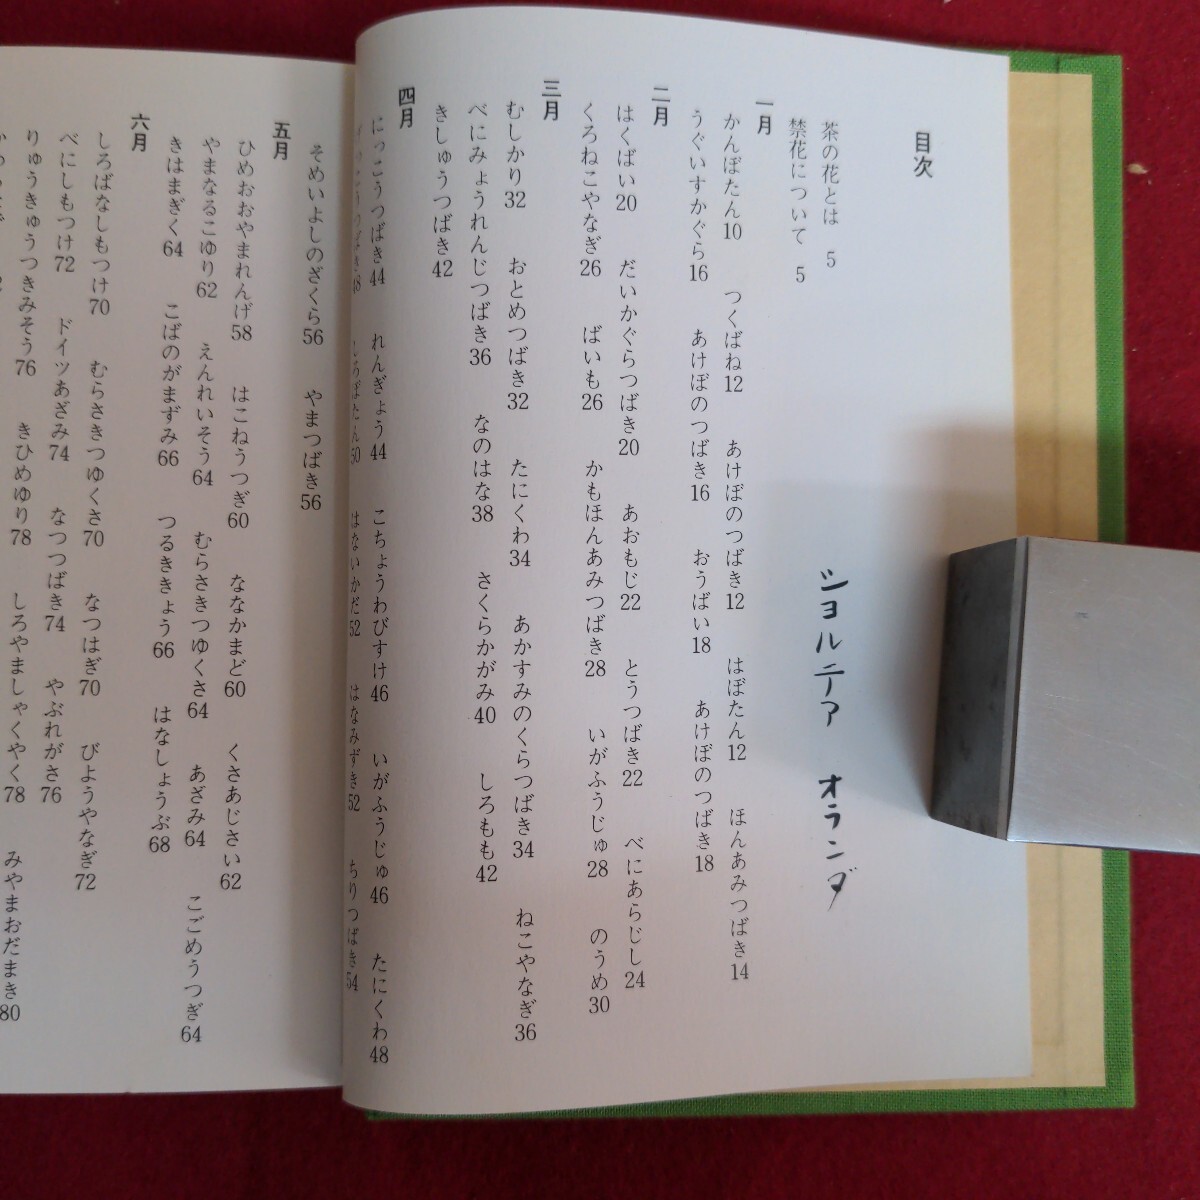 目次
茶の花とは 5
禁花について 5
一月
かんぼたん10 つくばね12 あけぼのつばき12 はぼたん12 ほんあみつばき14
うぐいすかぐら16 あけぼのつばき16 おうばい18 あけぼのつばき18
二月
はくばい20 だいかぐらつばき20 あおもじ22 とうつばき22 べにあらじし24
くろねこやなぎ26 ばいも26 かもほんあみつばき28 いがふうじゅ28 のうめ30
三月
むしかり32 おとめつばき32 たにくわ34 あかすみのくらつばき34 ねこやなぎ36
べにみょうれんじつばき36 なのはな38 さくらかがみ40 しろもも42
きしゅうつばき42
四月
にっこうつばき44 れんぎょう44 こちょうわびすけ46 いがふうじゅ46 たにくわ48
しろぼたん50 はないかだ52 はなみずき52 ちりつばき54
そめいよしのざくら56 やまつばき56
五月
ひめおおやまれんげ58 はこねうつぎ60 ななかまど60 くさあじさい62
やまなるこゆり62 えんれいそう64 むらさきつゆくさ64 あざみ64 こごめうつぎ64
きはまぎく64 こばのがまずみ66 つるききょう66 はなしょうぶ68
六月
しろばなしもつけ70 むらさきつゆくさ70 なつはぎ70 びようやなぎ72
べにしもつけ72 ドイツあざみ74 なつつばき74 やぶれがさ76
りゅうきゅうつきみそう76 きひめゆり78 しろやましゃくやく78 みやまおだまき80
ショルテア オランダ